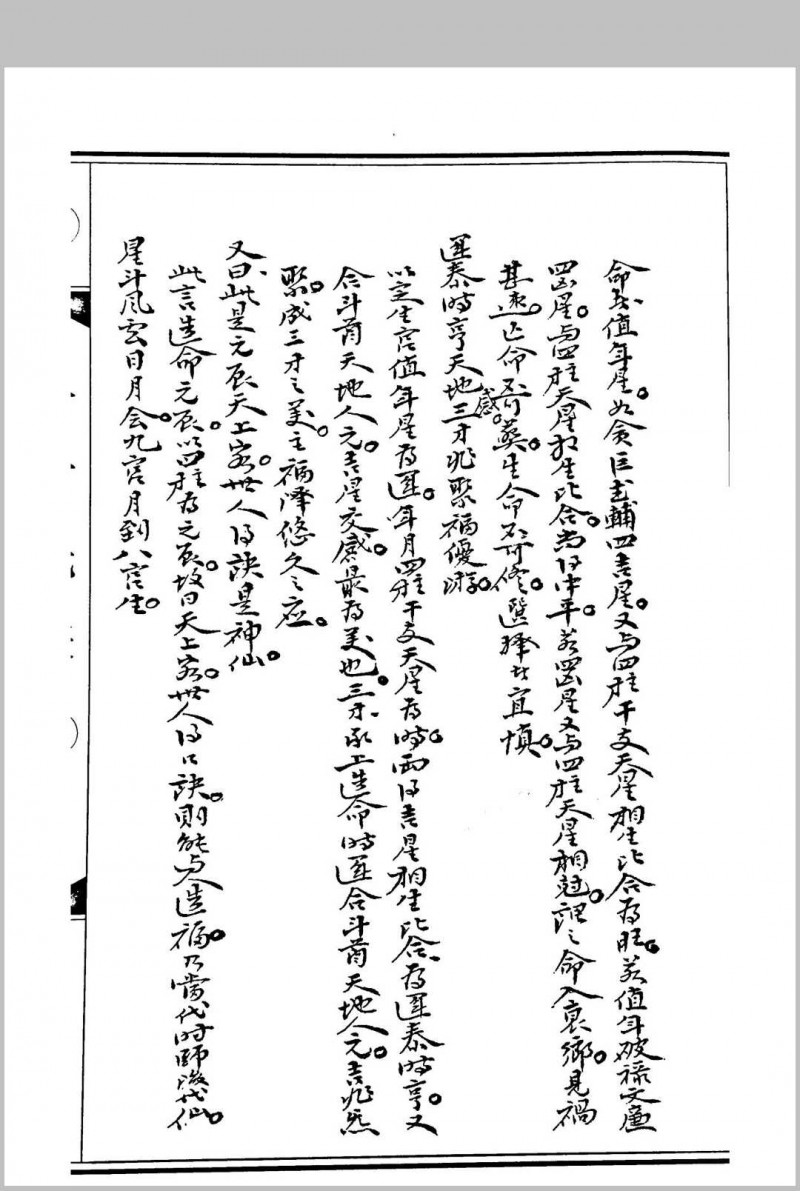 命宮值年星。如貪巨武輔四吉星。又与四柱干支天星相生比合为旺。若值年破祿文廉
四凶星。与四柱天星相生比合。尚得中平。若凶星又与四柱天星相尅。謂之命入衰鄉。見禍
甚速。亡命不可葬。生命不可修。選擇者宜慎。
運泰時亨天地三才兆聚福優游。
感。
以定生宮值年星为運。年月四柱干支天星为時。兩得吉星相生比合为運泰時亨。又
合斗首天地人元。吉星交感。最为美也。三才承上造命時運合斗首天地人元。吉兆然
聚。成三才之美。主福澤悠久之应。
又曰、此是元辰天上客。世人得訣是神仙。
此言造命元辰。以四柱为元辰。故曰天上客。世人得口訣。則能与人造福。乃當代时師後代仙。
星斗風雲日月会。九宮月到八宮生。